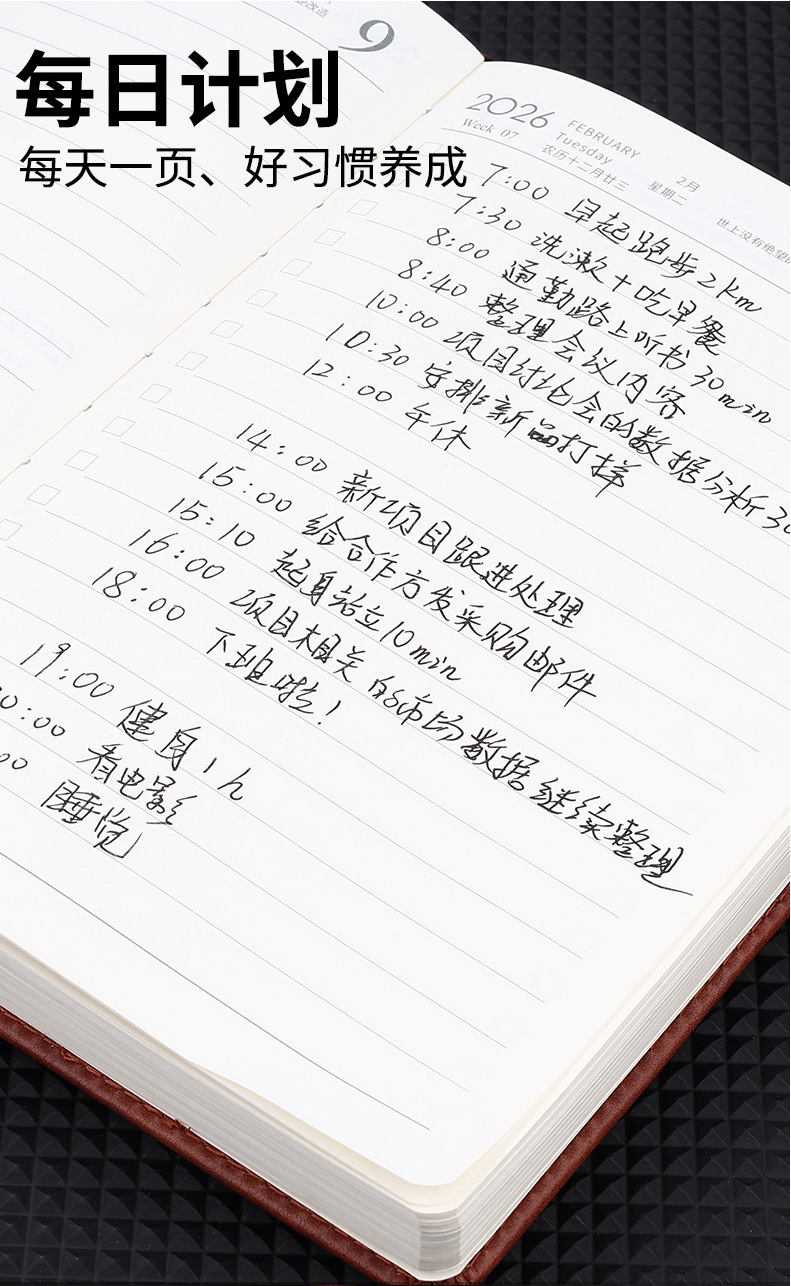 每日计划
每天一页、好习惯养成
9
2026
FEBRUARY
Week 07
Tuesday
2月
农历十二月廿三
星期二
世上没有绝望
7:00 早起跑步2km
7:30 洗漱+吃早餐
8:00 通勤路上听书30min
8:40 整理会议内容
10:00 项目讨论会的数据分析30
10:30 安排新品打样
12:00 午休
14:00 新项目跟进处理
15:00 给合作方发采购邮件
15:10 起身站立10min
16:00 项目相关的市场数据继续整理
18:00 下班啦!
19:00 健身1h
0:00 看电影
00 睡觉